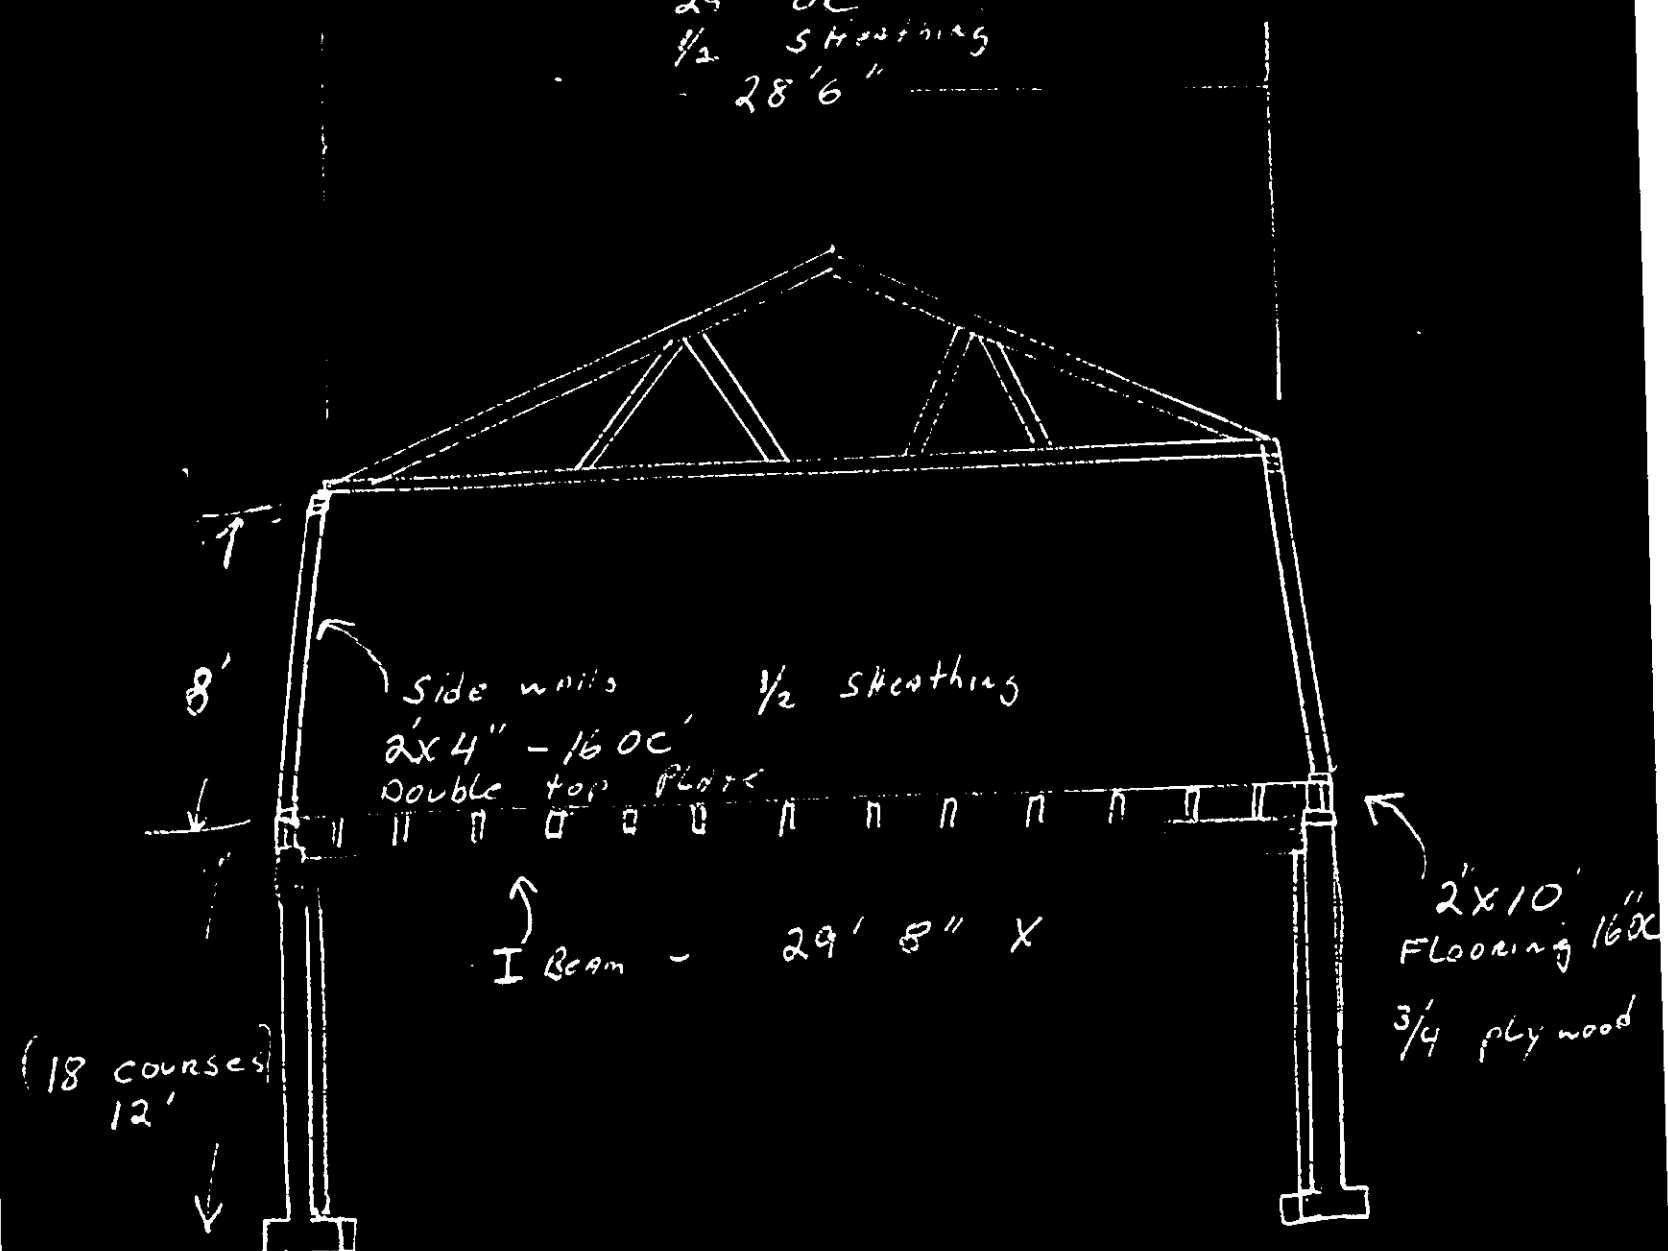 OC
1/2 SHeathing
28'6"
8'
Side walls 1/2 SHeathing
2'x4" - 16 OC'
Double top PLate
I Beam - 29' 8" X
2"x10'
FLooring 16"OC
3/4 plywood
(18 courses)
12'